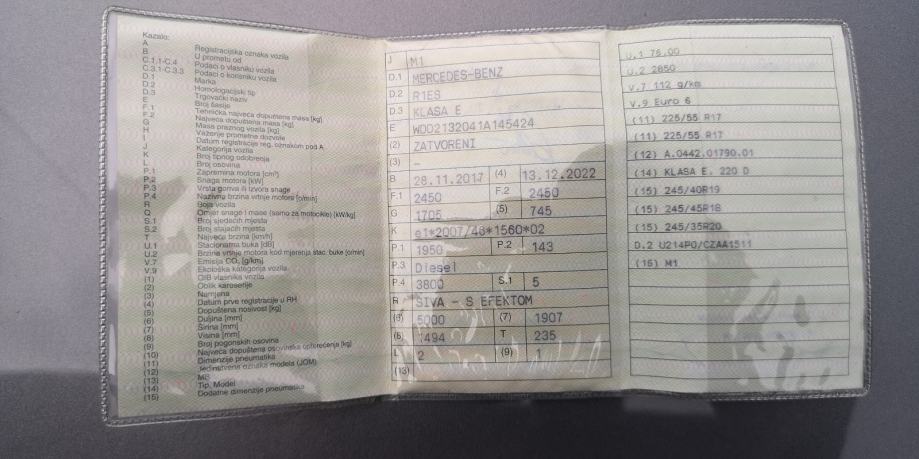 Kazalo:
A Registracijska oznaka vozila
B U prometu od
C.1.1-C.4 Podaci o vlasniku vozila
C.3.1-C.3.3 Podaci o korisniku vozila
D.1 Marka
D.2 Homologacijski tip
D.3 Trgovački naziv
E Broj šasije
F.1 Tehnička najveća dopuštena masa [kg]
F.2 Najveća dopuštena masa [kg]
G Masa praznog vozila [kg]
H Važenje prometne dozvole
I Datum registracije reg. oznakom pod A
J Kategorija vozila
K Broj tipnog odobrenja
L Broj osovina
P.1 Zapremina motora [cm³]
P.2 Snaga motora [kW]
P.3 Vrsta goriva ili izvora snage
P.4 Nazivna brzina vrtnje motora [o/min]
R Boja vozila
Q Omjer snage i mase (samo za motocikle) [kW/kg]
S.1 Broj sjedećih mjesta
S.2 Broj stajaćih mjesta
T Najveća brzina [km/h]
U.1 Stacionarna buka [dB]
U.2 Brzina vrtnje motora kod mjerenja stac. buke [o/min]
V.7 Emisija CO₂ [g/km]
V.9 Ekološka kategorija vozila
(1) OIB vlasnika vozila
(2) Oblik karoserije
(3) Namjena
(4) Datum prve registracije u RH
(5) Dopuštena nosivost [kg]
(6) Duljina [mm]
(7) Širina [mm]
(8) Visina [mm]
(9) Broj pogonskih osovina
(10) Najveća dopuštena osovinska opterećenja [kg]
(11) Dimenzije pneumatika
(12) Jedinstvena oznaka modela (JOM)
(13) MB
(14) Tip, Model
(15) Dodatne dimenzije pneumatika
J M1
D.1 MERCEDES-BENZ
D.2 R1ES
D.3 KLASA E
E WDD2132041A145424
(2) ZATVORENI
(3) –
B 28.11.2017 (4) 13.12.2022
F.1 2450 F.2 2450
G 1705 (5) 745
K e1*2007/46*1560*02
P.1 1950 P.2 143
P.3 Diesel
P.4 3800 S.1 5
R SIVA - S EFEKTOM
(6) 5000 (7) 1907
(8) 1494 T 235
L 2 (9) 1
(13)
U.1 75.00
U.2 2850
V.7 112 g/km
V.9 Euro 6
(11) 225/55 R17
(11) 225/55 R17
(12) A.0442.01790.01
(14) KLASA E. 220 D
(15) 245/40R19
(15) 245/45R18
(15) 245/35R20
D.2 U214P0/CZAA1511
(16) M1